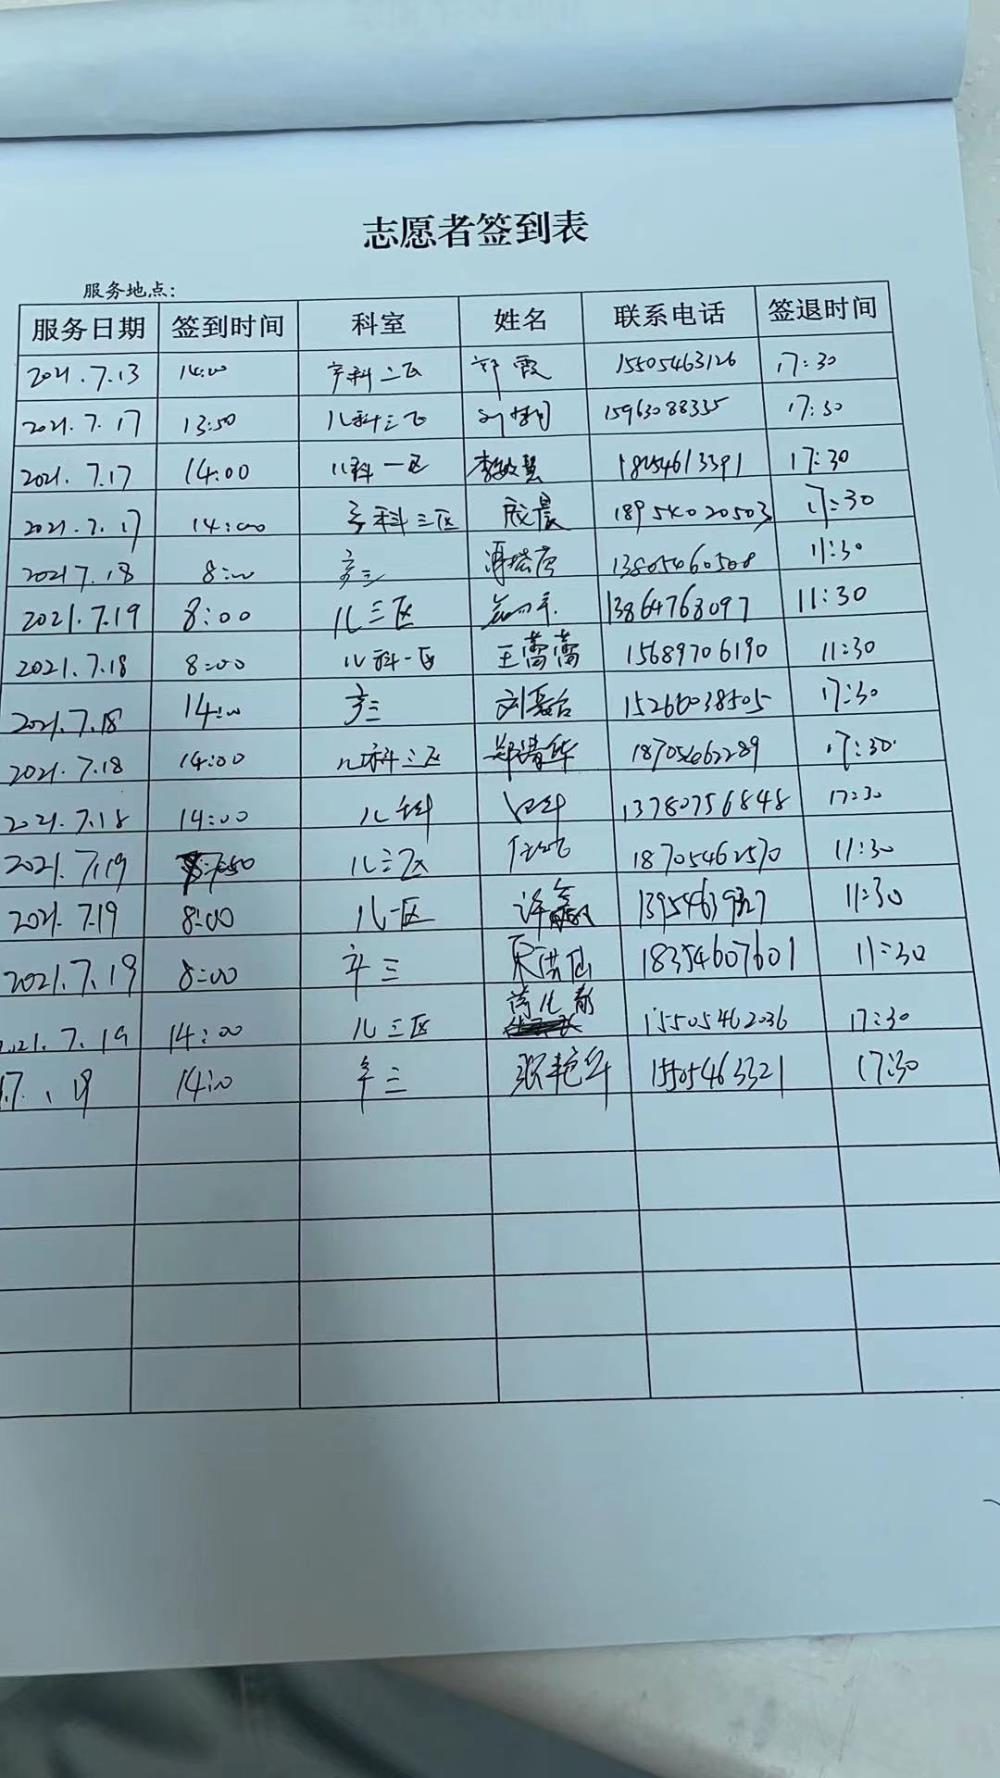 志愿者签到表
服务地点：
服务日期 签到时间 科室 姓名 联系电话 签退时间
2021.7.13 14:00 产科二区 郑霞 15505463126 17:30
2021.7.17 13:50 儿科三区 15963088335 17:30
2021.7.17 14:00 儿科一区 李敏慧 18254613391 17:30
2021.7.17 14:00 产科三区 晨 18954020503 17:30
2021 7.18 8:00 产三 13805460508 11:30
2021.7.19 8:00 儿三区 13864768097 11:30
2021.7.18 8:00 儿科一区 王蕾蕾 15689706190 11:30
2021.7.18 14:00 产三 刘 15266038505 17:30
2021.7.18 14:00 儿科三区 郑清华 18705462289 17:30
2021.7.18 14:00 儿科 13780756848 17:30
2021.7.19 儿三区 18705462570 11:30
2021.7.19 8:00 儿一区 许鑫 11:30
2021.7.19 8:00 产三 18354607601 11:30
2021.7.19 14:00 儿三区 15505462036 17:30
17.19 14:00 产三 张艳华 15505463321 17:30